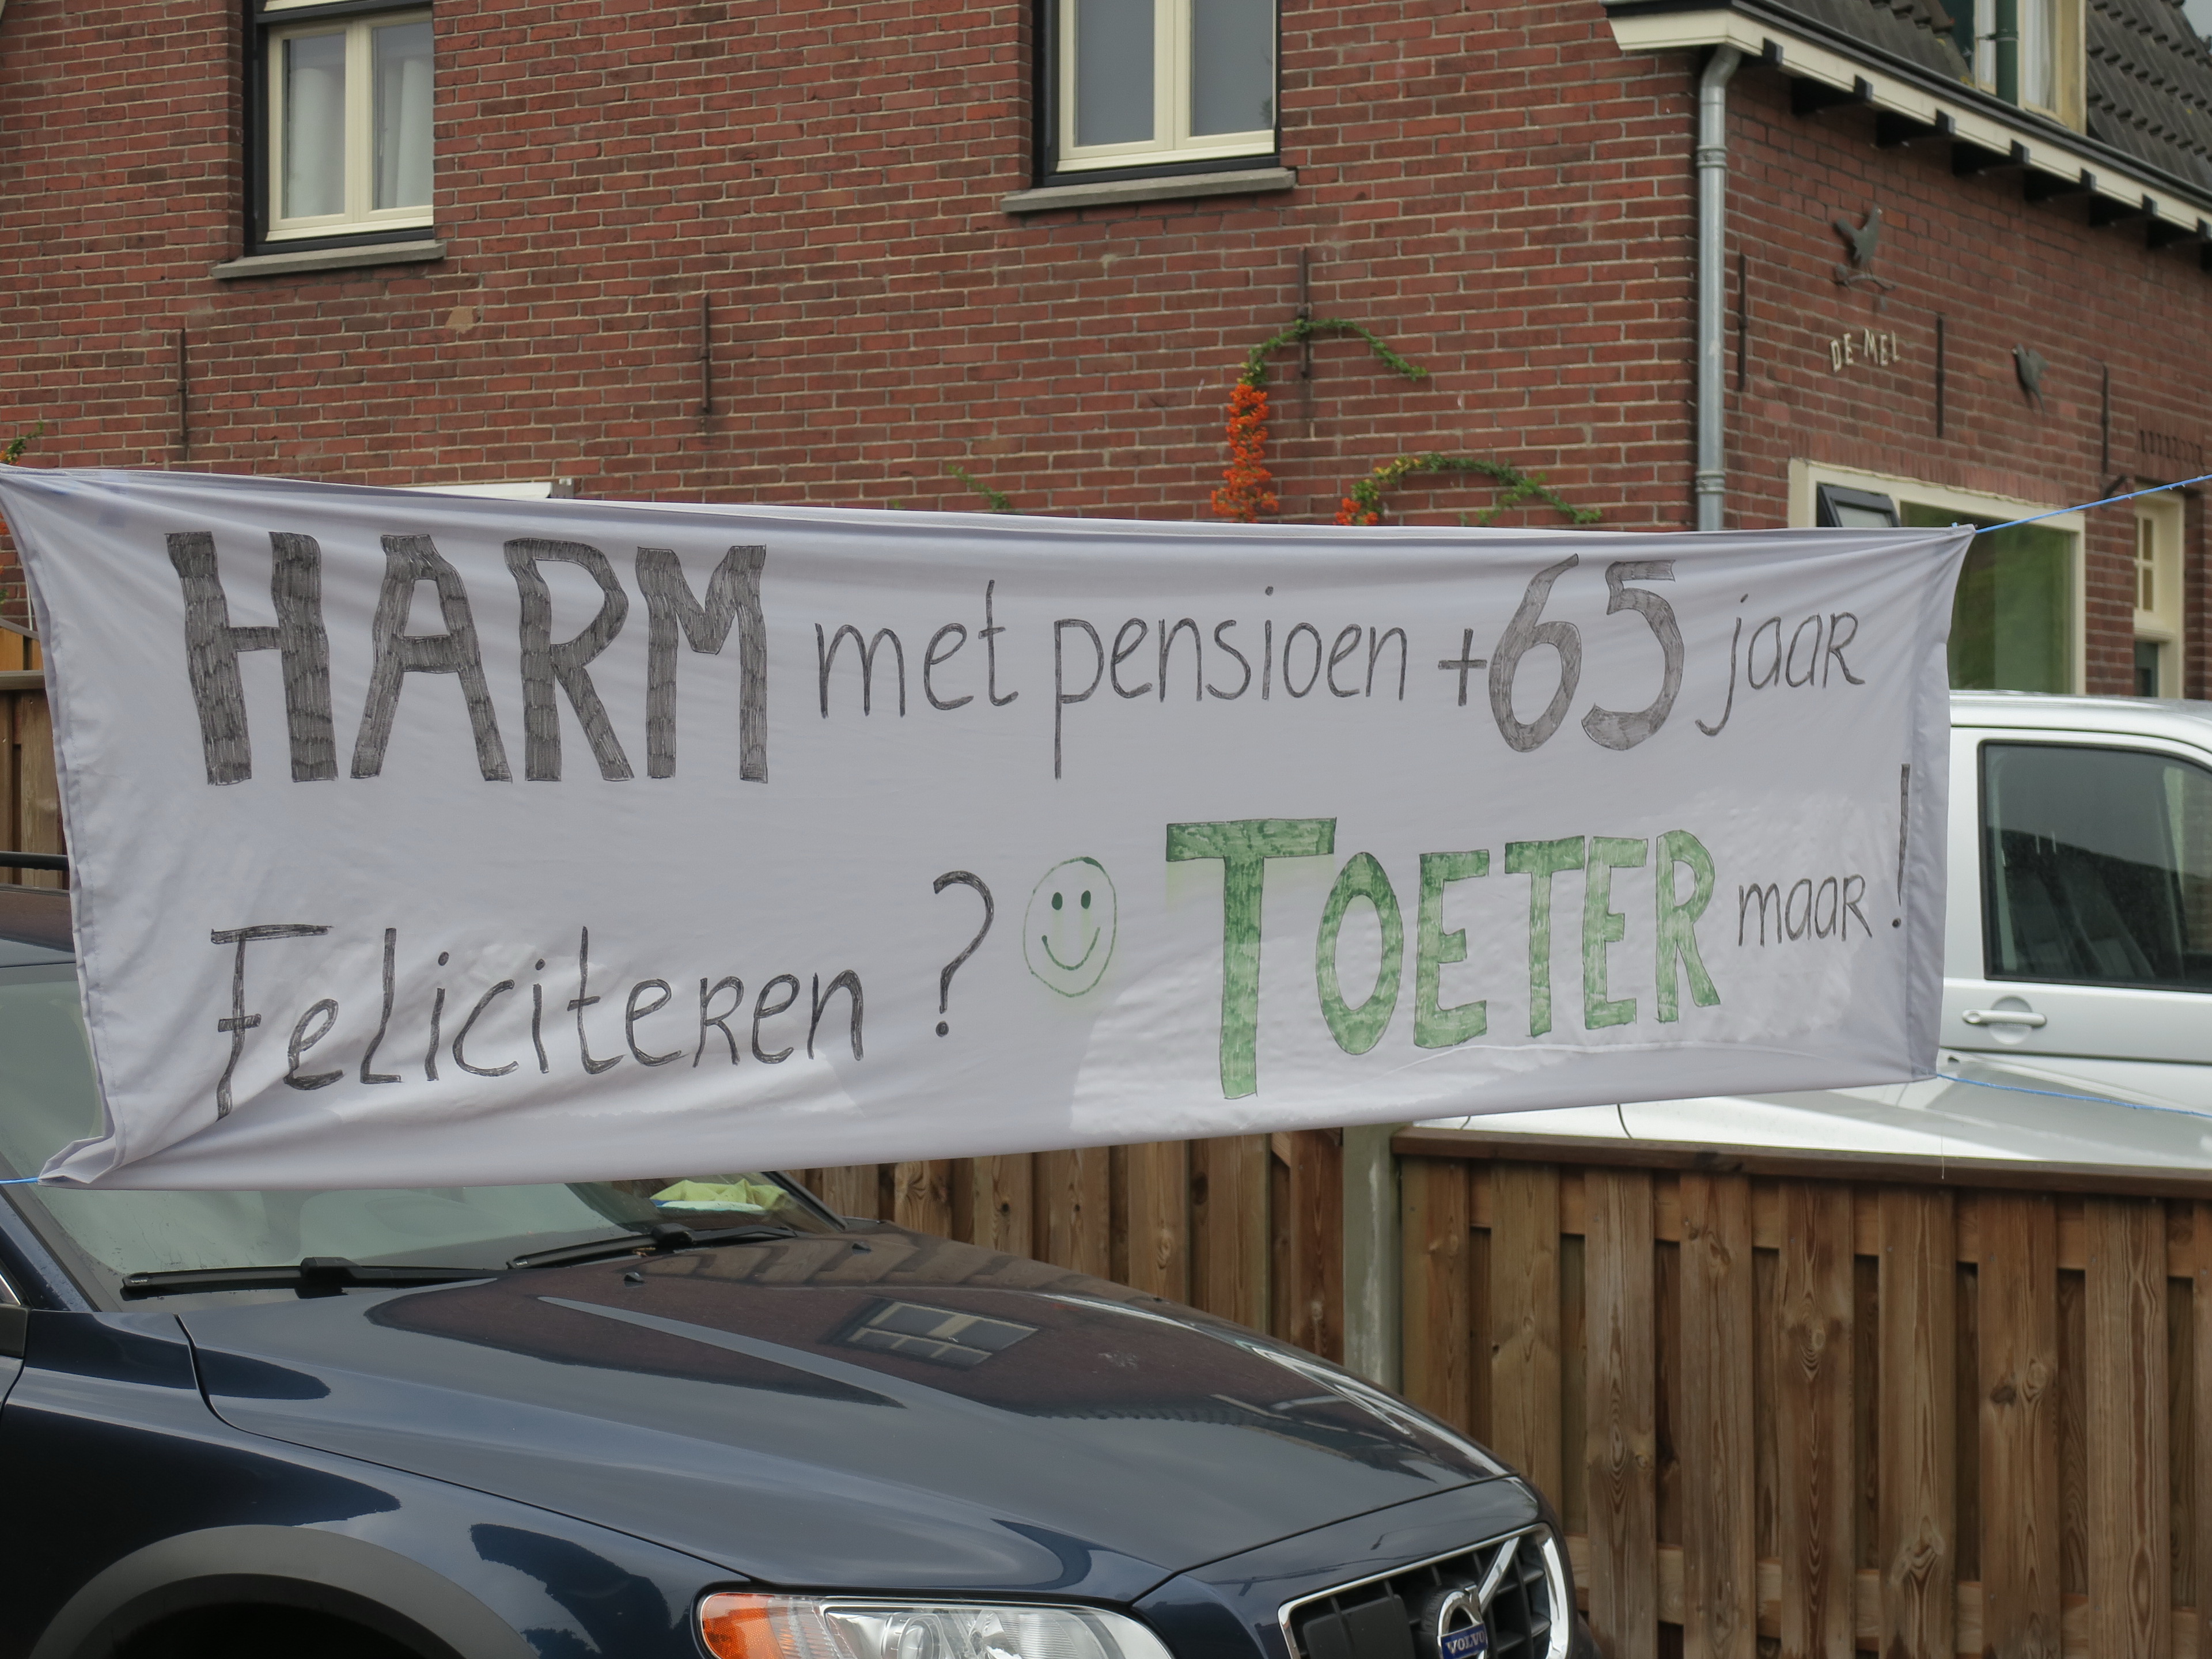 DE MEL
HARM met pensioen + 65 jaar
Feliciteren ? TOETER maar !
VOLVO